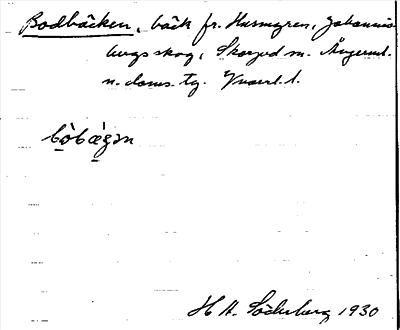 Bodbäcken, bäck fr. Husmyren, Johannis-
bergs skog, Skorped sn. Ångerml.
n. doms. tg. Kvarnl. 1.
bo̱bæ̱gən
H A. Söderberg 1930